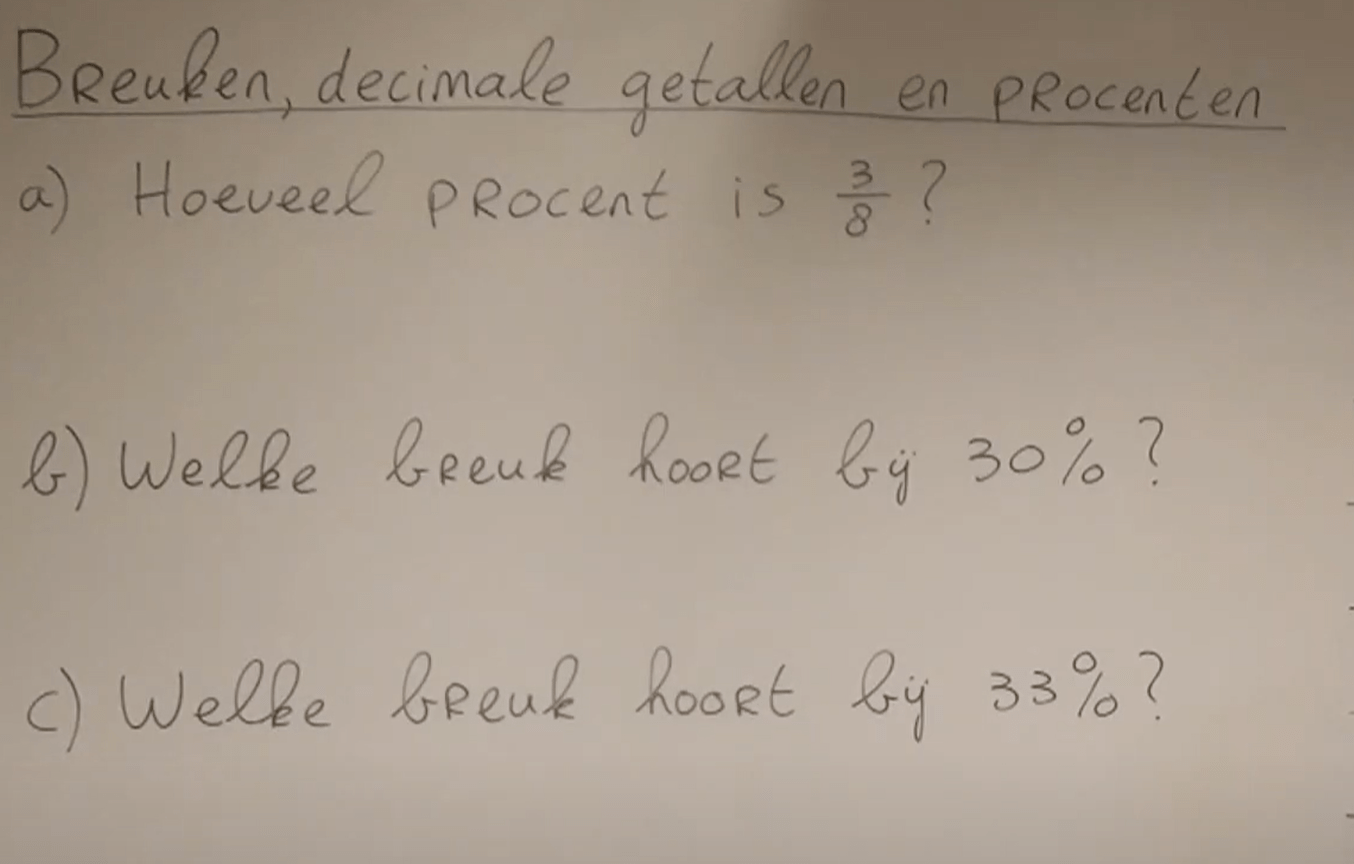 Breuken, decimale getallen en procenten
a) Hoeveel procent is 3/8 ?
b) Welke breuk hoort bij 30% ?
c) Welke breuk hoort bij 33% ?